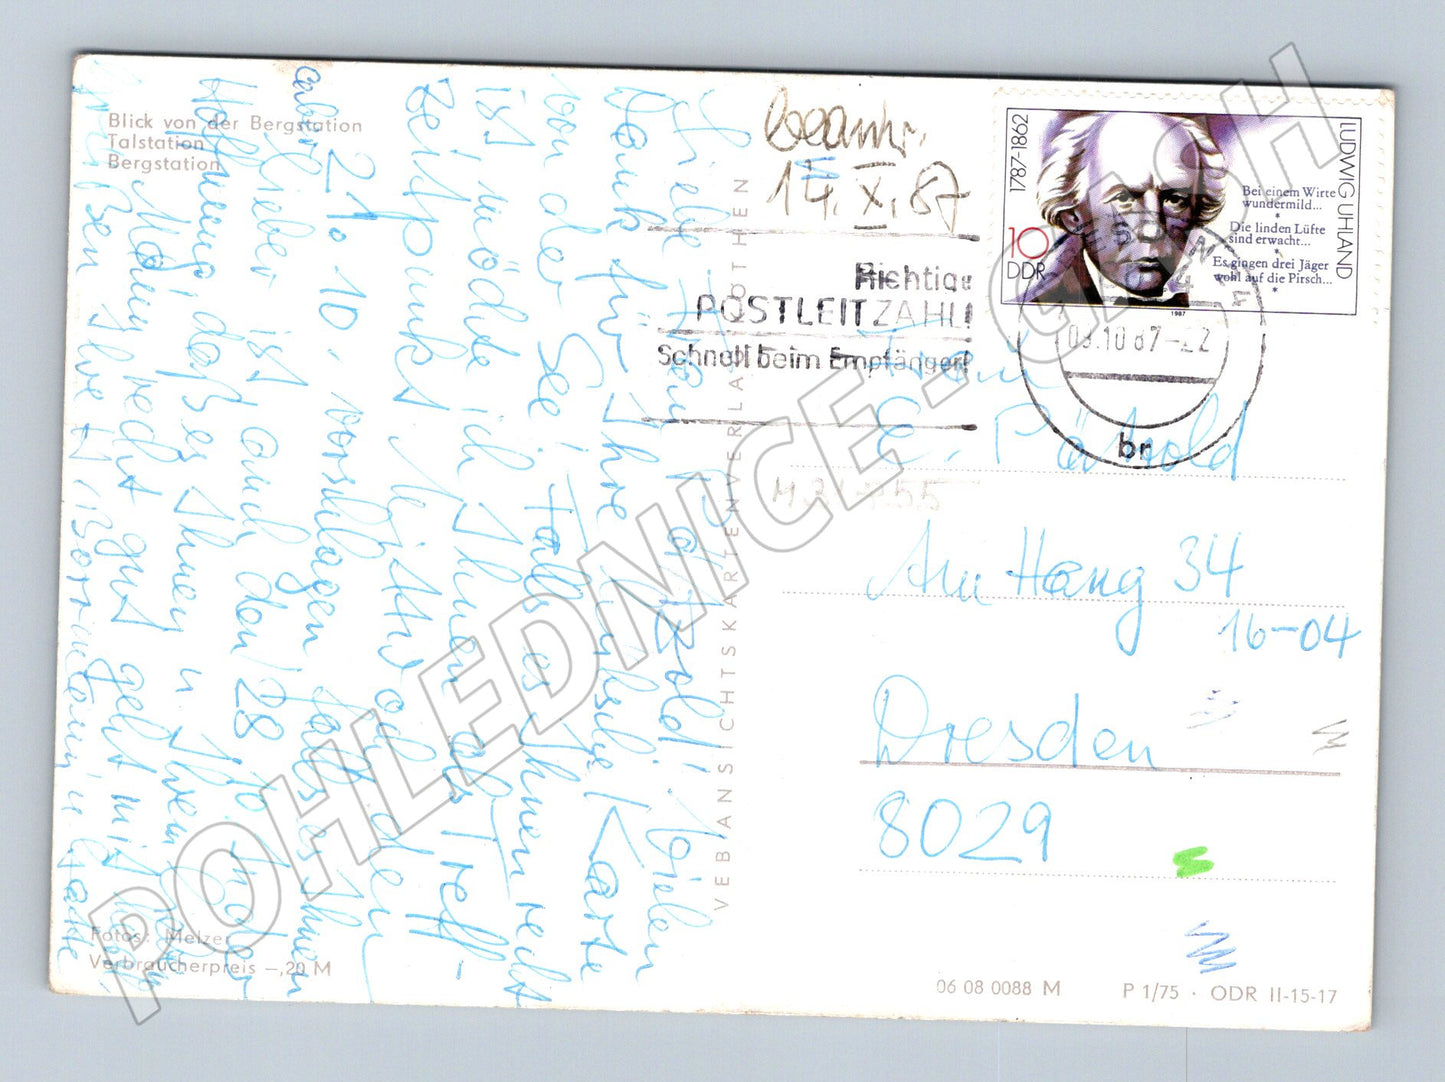 Blick von der Bergstation
Talstation
Bergstation
Liebe Frau Pätzold! Vielen
Dank für Ihre hübsche Karte
von der See! Falls es Ihnen recht
ist möchte ich Ihnen als Treff-
Zeitpunkt Mittwoch den
21. 10. vorschlagen falls es Ihnen
aber lieber ist auch den 28. 10. Toler
Hoffend daß es Ihnen u. Ihrem
Mann recht gut geht mit lieben
Grüßen Ihre
beantw.
14. X. 87
Richtige
POSTLEITZAHL!
Schnell beim Empfänger!
1787-1862
LUDWIG UHLAND
Bei einem Wirte
wundermild...
*
Die linden Lüfte
sind erwacht...
*
Es gingen drei Jäger
wohl auf die Pirsch...
*
10
DDR
1987
10 87
br
Frau
E. Pätzold
Am Hang 34
16-04
Dresden
8029
VEB ANSICHTSKARTENVERLAG KÖTHEN
Fotos: Melzer
Verbraucherpreis –,20 M
06 08 0088 M
P 1/75 · ODR II-15-17
POHLEDNICE - CASH